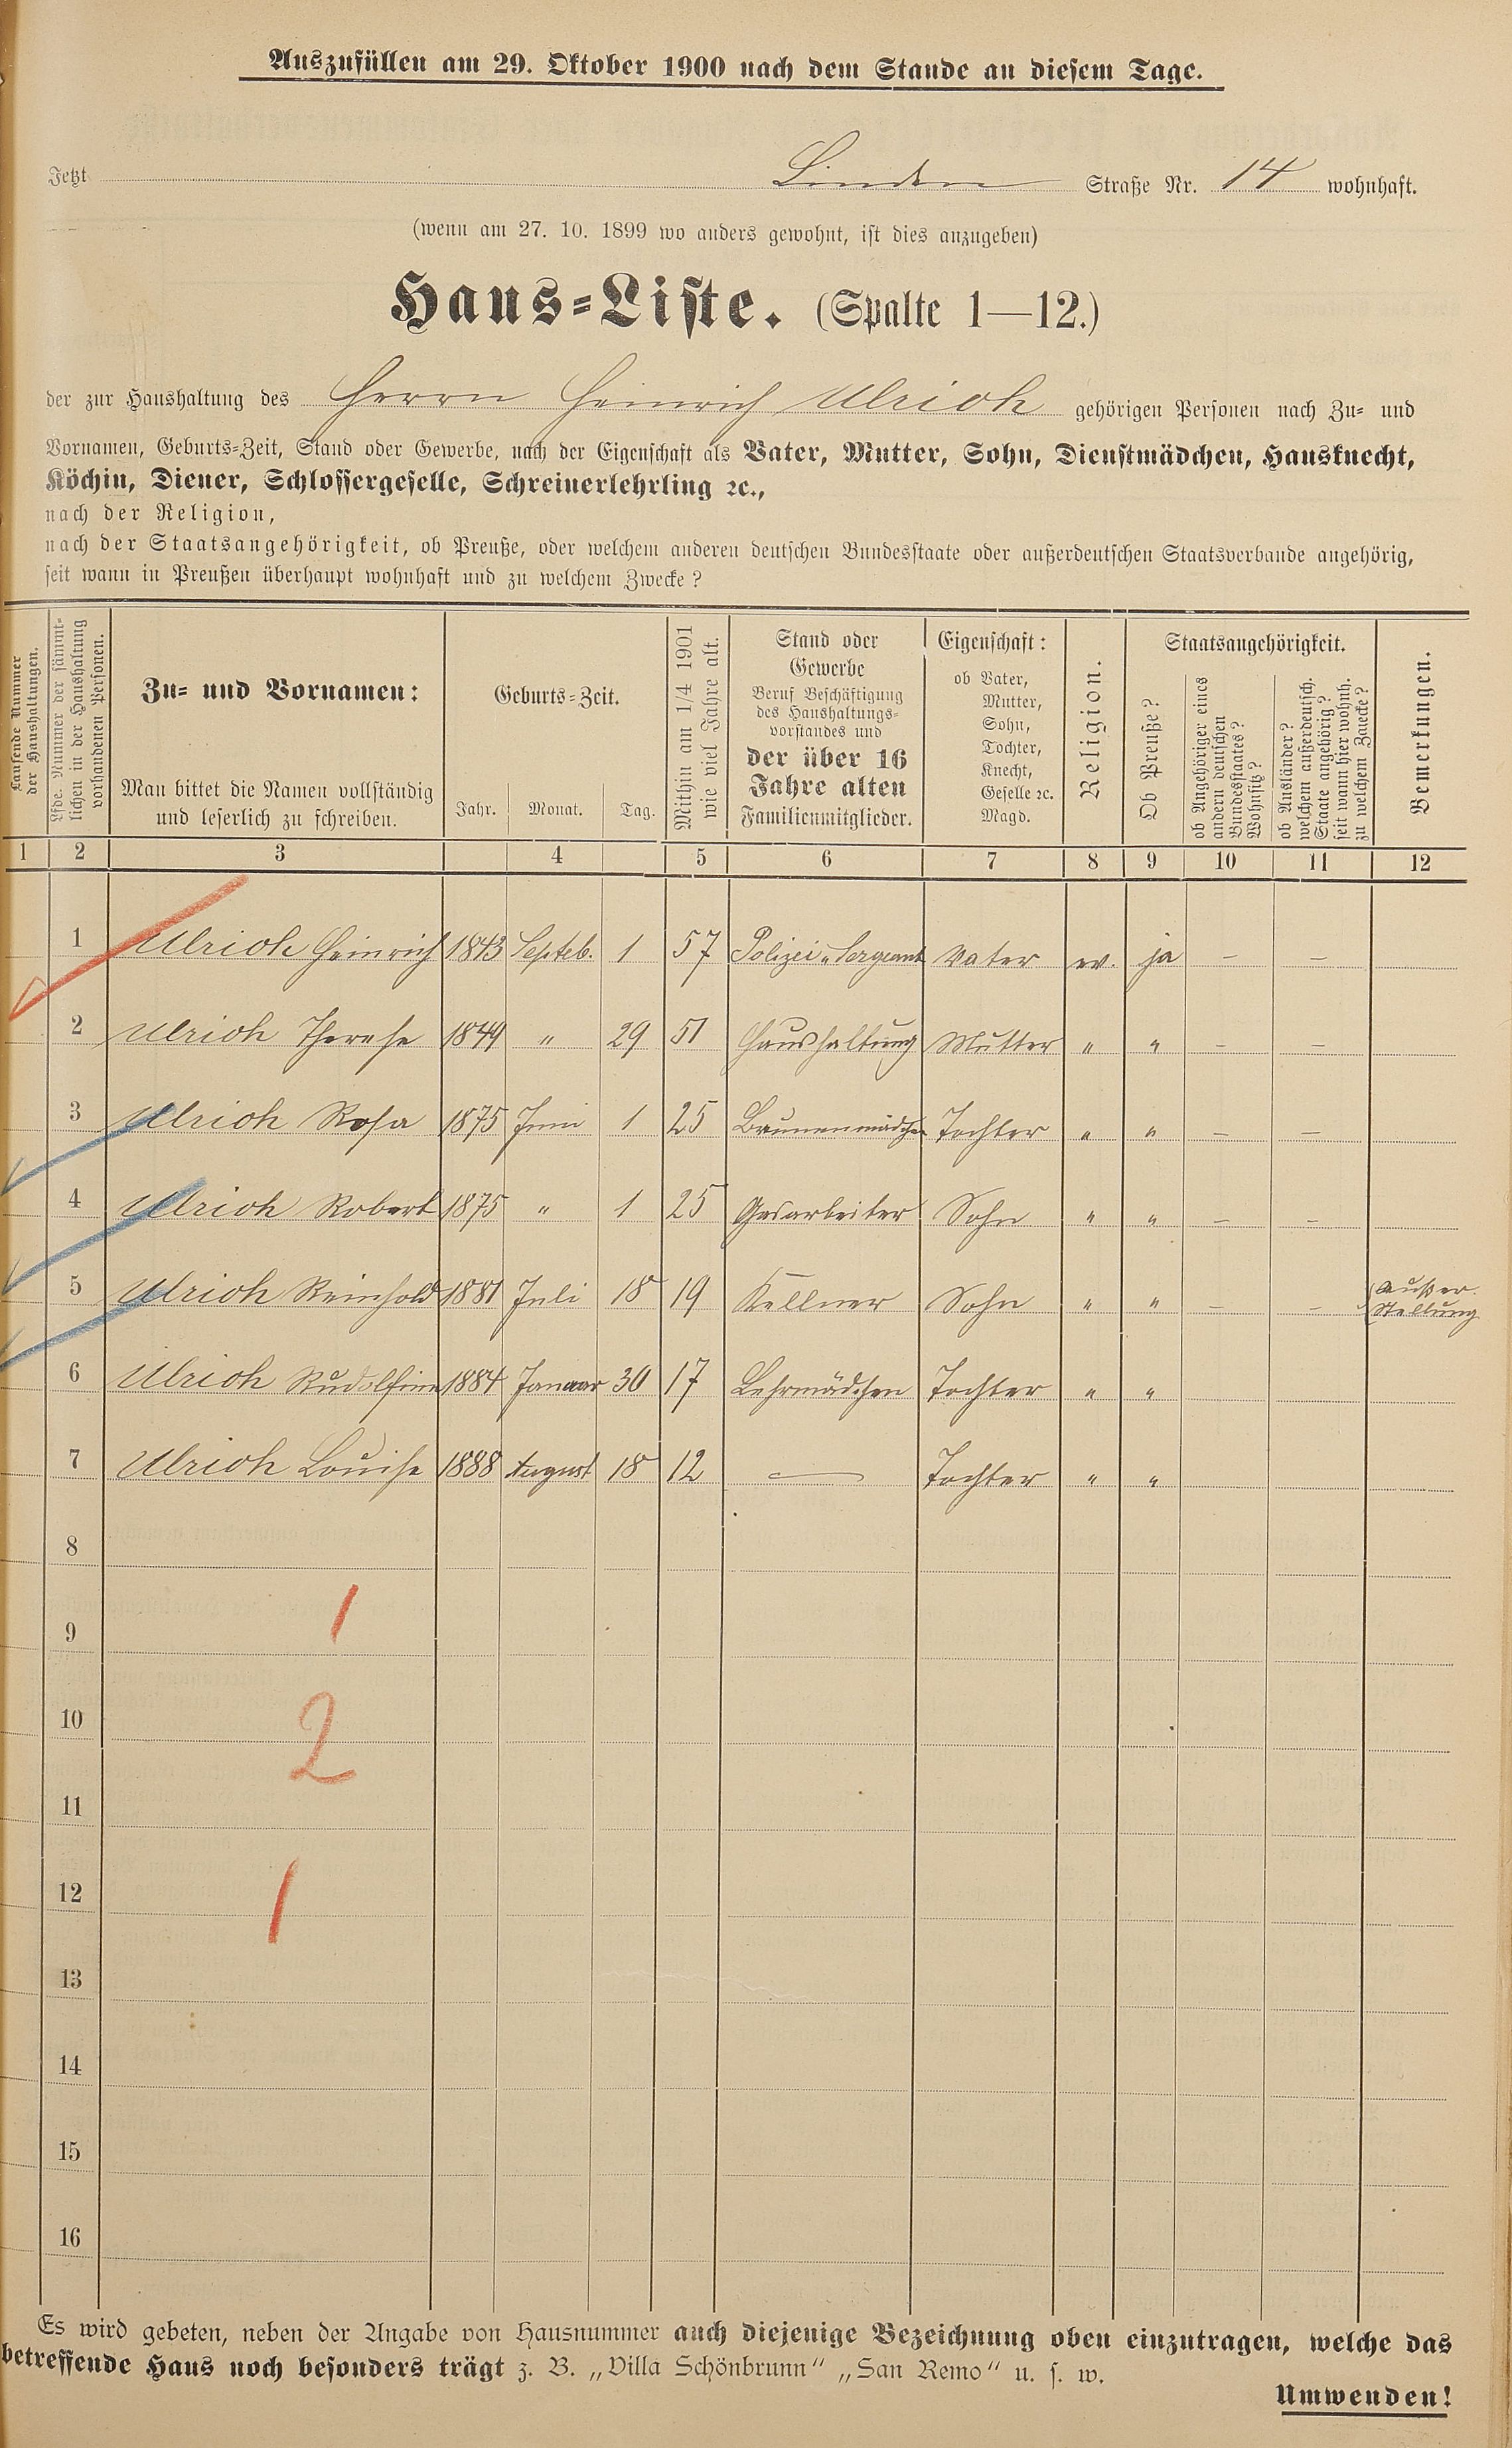 Auszufüllen am 29. Oktober 1900 nach dem Stande an diesem Tage.
Jetzt Linden Straße Nr. 14 wohnhaft.
(wenn am 27. 10. 1899 wo anders gewohnt, ist dies anzugeben)
Haus-Liste. (Spalte 1—12.)
der zur Haushaltung des Herrn Heinrich Ulrich gehörigen Personen nach Zu- und
Vornamen, Geburts-Zeit, Stand oder Gewerbe, nach der Eigenschaft als Vater, Mutter, Sohn, Dienstmädchen, Hausknecht,
Köchin, Diener, Schlossergeselle, Schreinerlehrling ꝛc.,
nach der Religion,
nach der Staatsangehörigkeit, ob Preuße, oder welchem anderen deutschen Bundesstaate oder außerdeutschen Staatsverbande angehörig,
seit wann in Preußen überhaupt wohnhaft und zu welchem Zwecke?
Laufende Nummer
der Haushaltungen.
Lfde. Nummer der sämmt-
lichen in der Haushaltung
vorhandenen Personen.
Zu- und Vornamen:
Man bittet die Namen vollständig
und leserlich zu schreiben.
Geburts-Zeit.
Jahr. Monat. Tag.
Mithin am 1/4 1901
wie viel Jahre alt.
Stand oder
Gewerbe
Beruf Beschäftigung
des Haushaltungs-
vorstandes und
der über 16
Jahre alten
Familienmitglieder.
Eigenschaft:
ob Vater,
Mutter,
Sohn,
Tochter,
Knecht,
Geselle ꝛc.
Magd.
Religion.
Staatsangehörigkeit.
Ob Preuße?
ob Angehöriger eines
andern deutschen
Bundesstaates?
Wohnsitz?
ob Ausländer?
welchem außerdeutsch.
Staate angehörig?
seit wann hier wohnh.
zu welchem Zwecke?
Bemerkungen.
1 2 3 4 5 6 7 8 9 10 11 12
1 Ulrich Heinrich 1843 Septeb. 1 57 Polizei-Sergeant Vater ev. ja – –
2 Ulrich Therese 1849 " 29 51 Haushaltung Mutter " " – –
3 Ulrich Rosa 1875 Juni 1 25 Brunnenmädchen Tochter " " – –
4 Ulrich Robert 1875 " 1 25 Gasarbeiter Sohn " " – –
5 Ulrich Reinhold 1881 Juli 18 19 Kellner Sohn " " – – Außer Stellung
6 Ulrich Rudolfine 1884 Januar 30 17 Lehrmädchen Tochter " "
7 Ulrich Louise 1888 August 18 12 — Tochter " "
8
9 1
10 2
11
12 1
13
14
15
16
Es wird gebeten, neben der Angabe von Hausnummer auch diejenige Bezeichnung oben einzutragen, welche das
betreffende Haus noch besonders trägt z. B. „Villa Schönbrunn" „San Remo" u. s. w.
Umwenden!